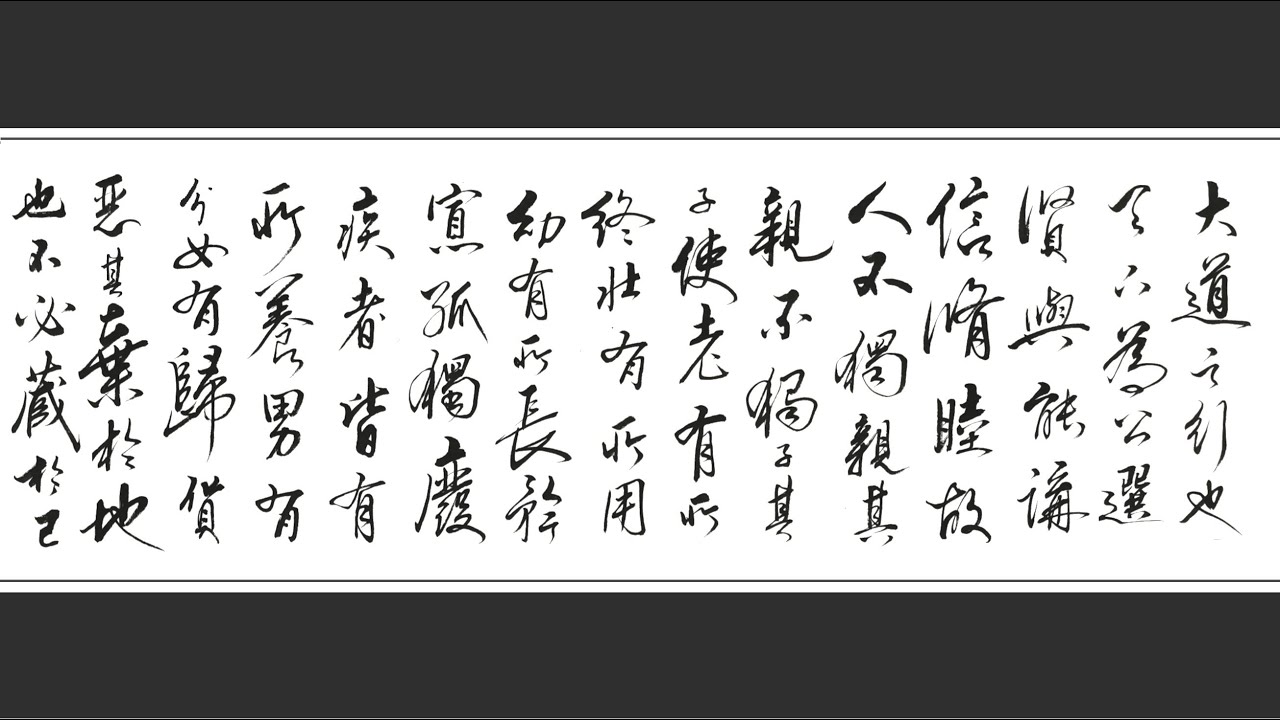 大道之行也
天下為公選
賢與能講
信脩睦故
人不獨親其
親不獨子其
子使老有所
終壯有所用
幼有所長矜
寡孤獨廢
疾者皆有
所養男有
分女有歸貨
惡其棄於地
也不必藏於己